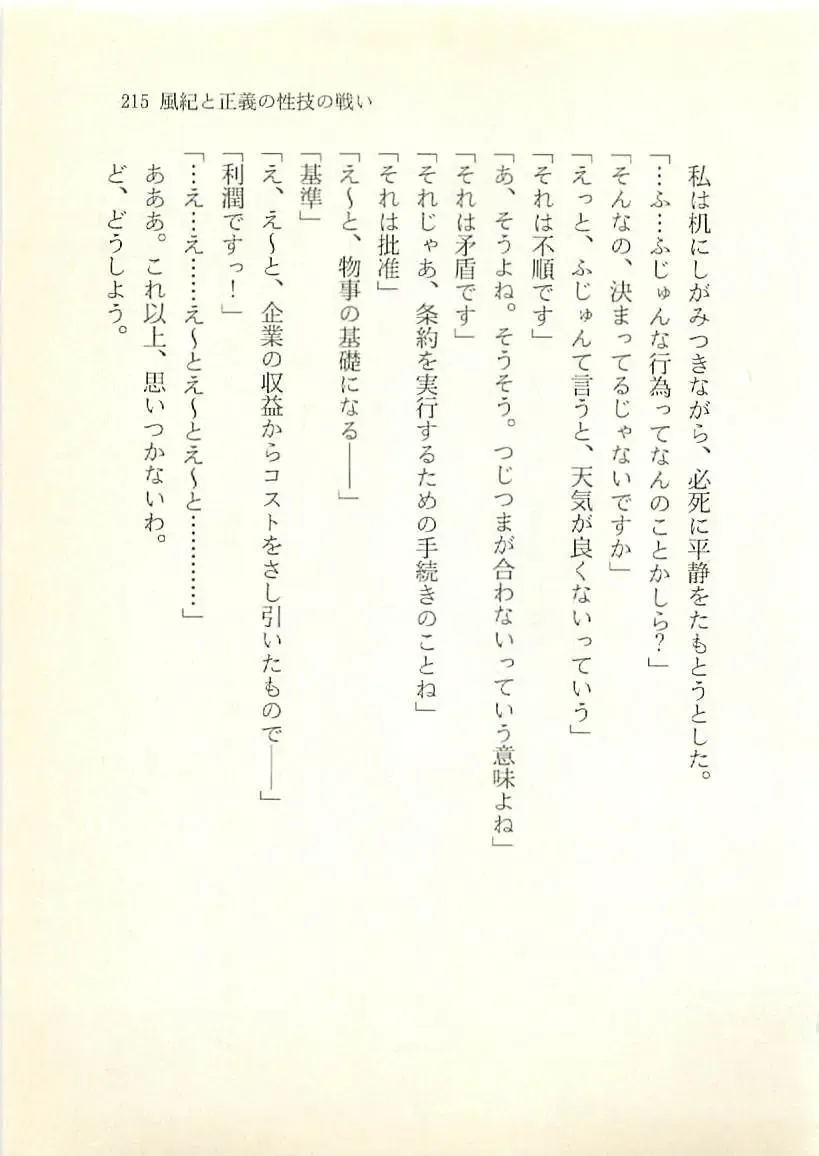 215 風紀と正義の性技の戦い
私は机にしがみつきながら、必死に平静をたもとうとした。
「…ふ…ふじゅんな行為ってなんのことかしら?」
「そんなの、決まってるじゃないですか」
「えっと、ふじゅんて言うと、天気が良くないっていう」
「それは不順です」
「あ、そうよね。そうそう。つじつまが合わないっていう意味よね」
「それは矛盾です」
「それじゃあ、条約を実行するための手続きのことね」
「それは批准」
「え〜と、物事の基礎になる――」
「基準」
「え、え〜と、企業の収益からコストをさし引いたもので――」
「利潤ですっ!」
「…え…え……え〜とえ〜とえ〜と…………」
あああ。これ以上、思いつかないわ。
ど、どうしよう。